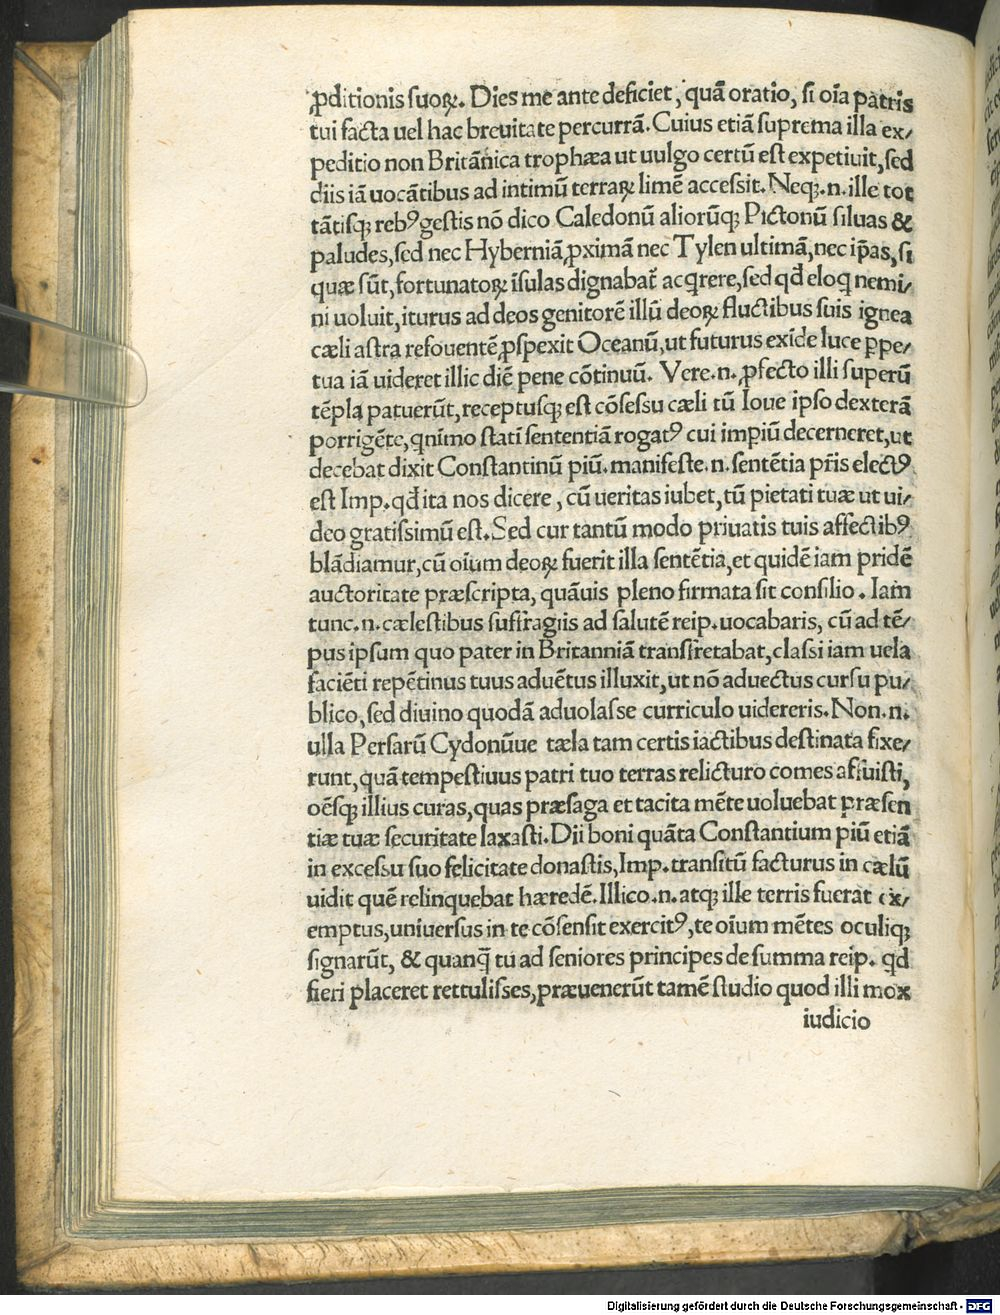 ꝓditionis suoꝝ. Dies me ante deficiet, quã oratio, si oĩa patris
tui facta uel hac breuitate percurrã. Cuius etiã suprema illa ex/
peditio non Britãnica trophæa ut uulgo certũ est expetiuit, sed
diis iã uocãtibus ad intimũ terraꝝ limẽ accessit. Neqꝫ.n. ille tot
tãtisqꝫ rebꝰ gestis nõ dico Caledonũ aliorũqꝫ Pictonũ siluas &
paludes, sed nec Hyberniã ꝓximã nec Tylen ultimã, nec ip̃as, si
quæ sũt, fortunatoꝝ ĩsulas dignabat̃ acq̃rere, sed qd̃ eloq̃ nemi/
ni uoluit, iturus ad deos genitorẽ illũ deoꝝ fluctibus suis ignea
cæli astra refouentẽ ꝓspexit Oceanũ, ut futurus exĩde luce ꝑpe/
tua iã uideret illic diẽ pene cõtinuũ. Vere.n. ꝓfecto illi superũ
tẽpla patuerũt, receptusqꝫ est cõsessu cæli tũ Ioue ipso dexterã
porrigẽte, qnĩmo stati sententiã rogatꝰ cui imꝑiũ decerneret, ut
decebat dixit Constantinũ piũ. manifeste.n. sentẽtia pr̃is electꝰ
est Imp. qd̃ ita nos dicere, cũ ueritas iubet, tũ pietati tuæ ut ui/
deo gratissimũ est. Sed cur tantũ modo priuatis tuis affectibꝰ
blãdiamur, cũ oĩum deoꝝ fuerit illa sentẽtia, et quidẽ iam pridẽ
auctoritate præscripta, quãuis pleno firmata sit consilio. Iam
tunc.n. cælestibus suffragiis ad salutẽ reip. uocabaris, cũ ad tẽ/
pus ipsum quo pater in Britanniã transfretabat, classi iam uela
faciẽti repẽtinus tuus aduẽtus illuxit, ut nõ aduectus cursu pu/
blico, sed diuino quodã aduolasse curriculo uidereris. Non.n.
ulla Persarũ Cydonũue tæla tam certis iactibus destinata fixe/
runt, quã tempestiuus patri tuo terras relicturo comes affuisti,
oẽsqꝫ illius curas, quas præsaga et tacita mẽte uoluebat præsen
tiæ tuæ securitate laxasti. Dii boni quãta Constantium piũ etiã
in excessu suo felicitate donastis, Imp. transitũ facturus in cælũ
uidit quẽ relinquebat hæredẽ. Illico.n. atqꝫ ille terris fuerat ex/
emptus, uniuersus in te cõsensit exercitꝰ, te oĩum mẽtes oculiqꝫ
signarũt, & quanq̃ tu ad seniores principes de summa reip. qd
fieri placeret rettulisses, præuenerũt tamẽ studio quod illi mox
iudicio
Digitalisierung gefördert durch die Deutsche Forschungsgemeinschaft - DFG